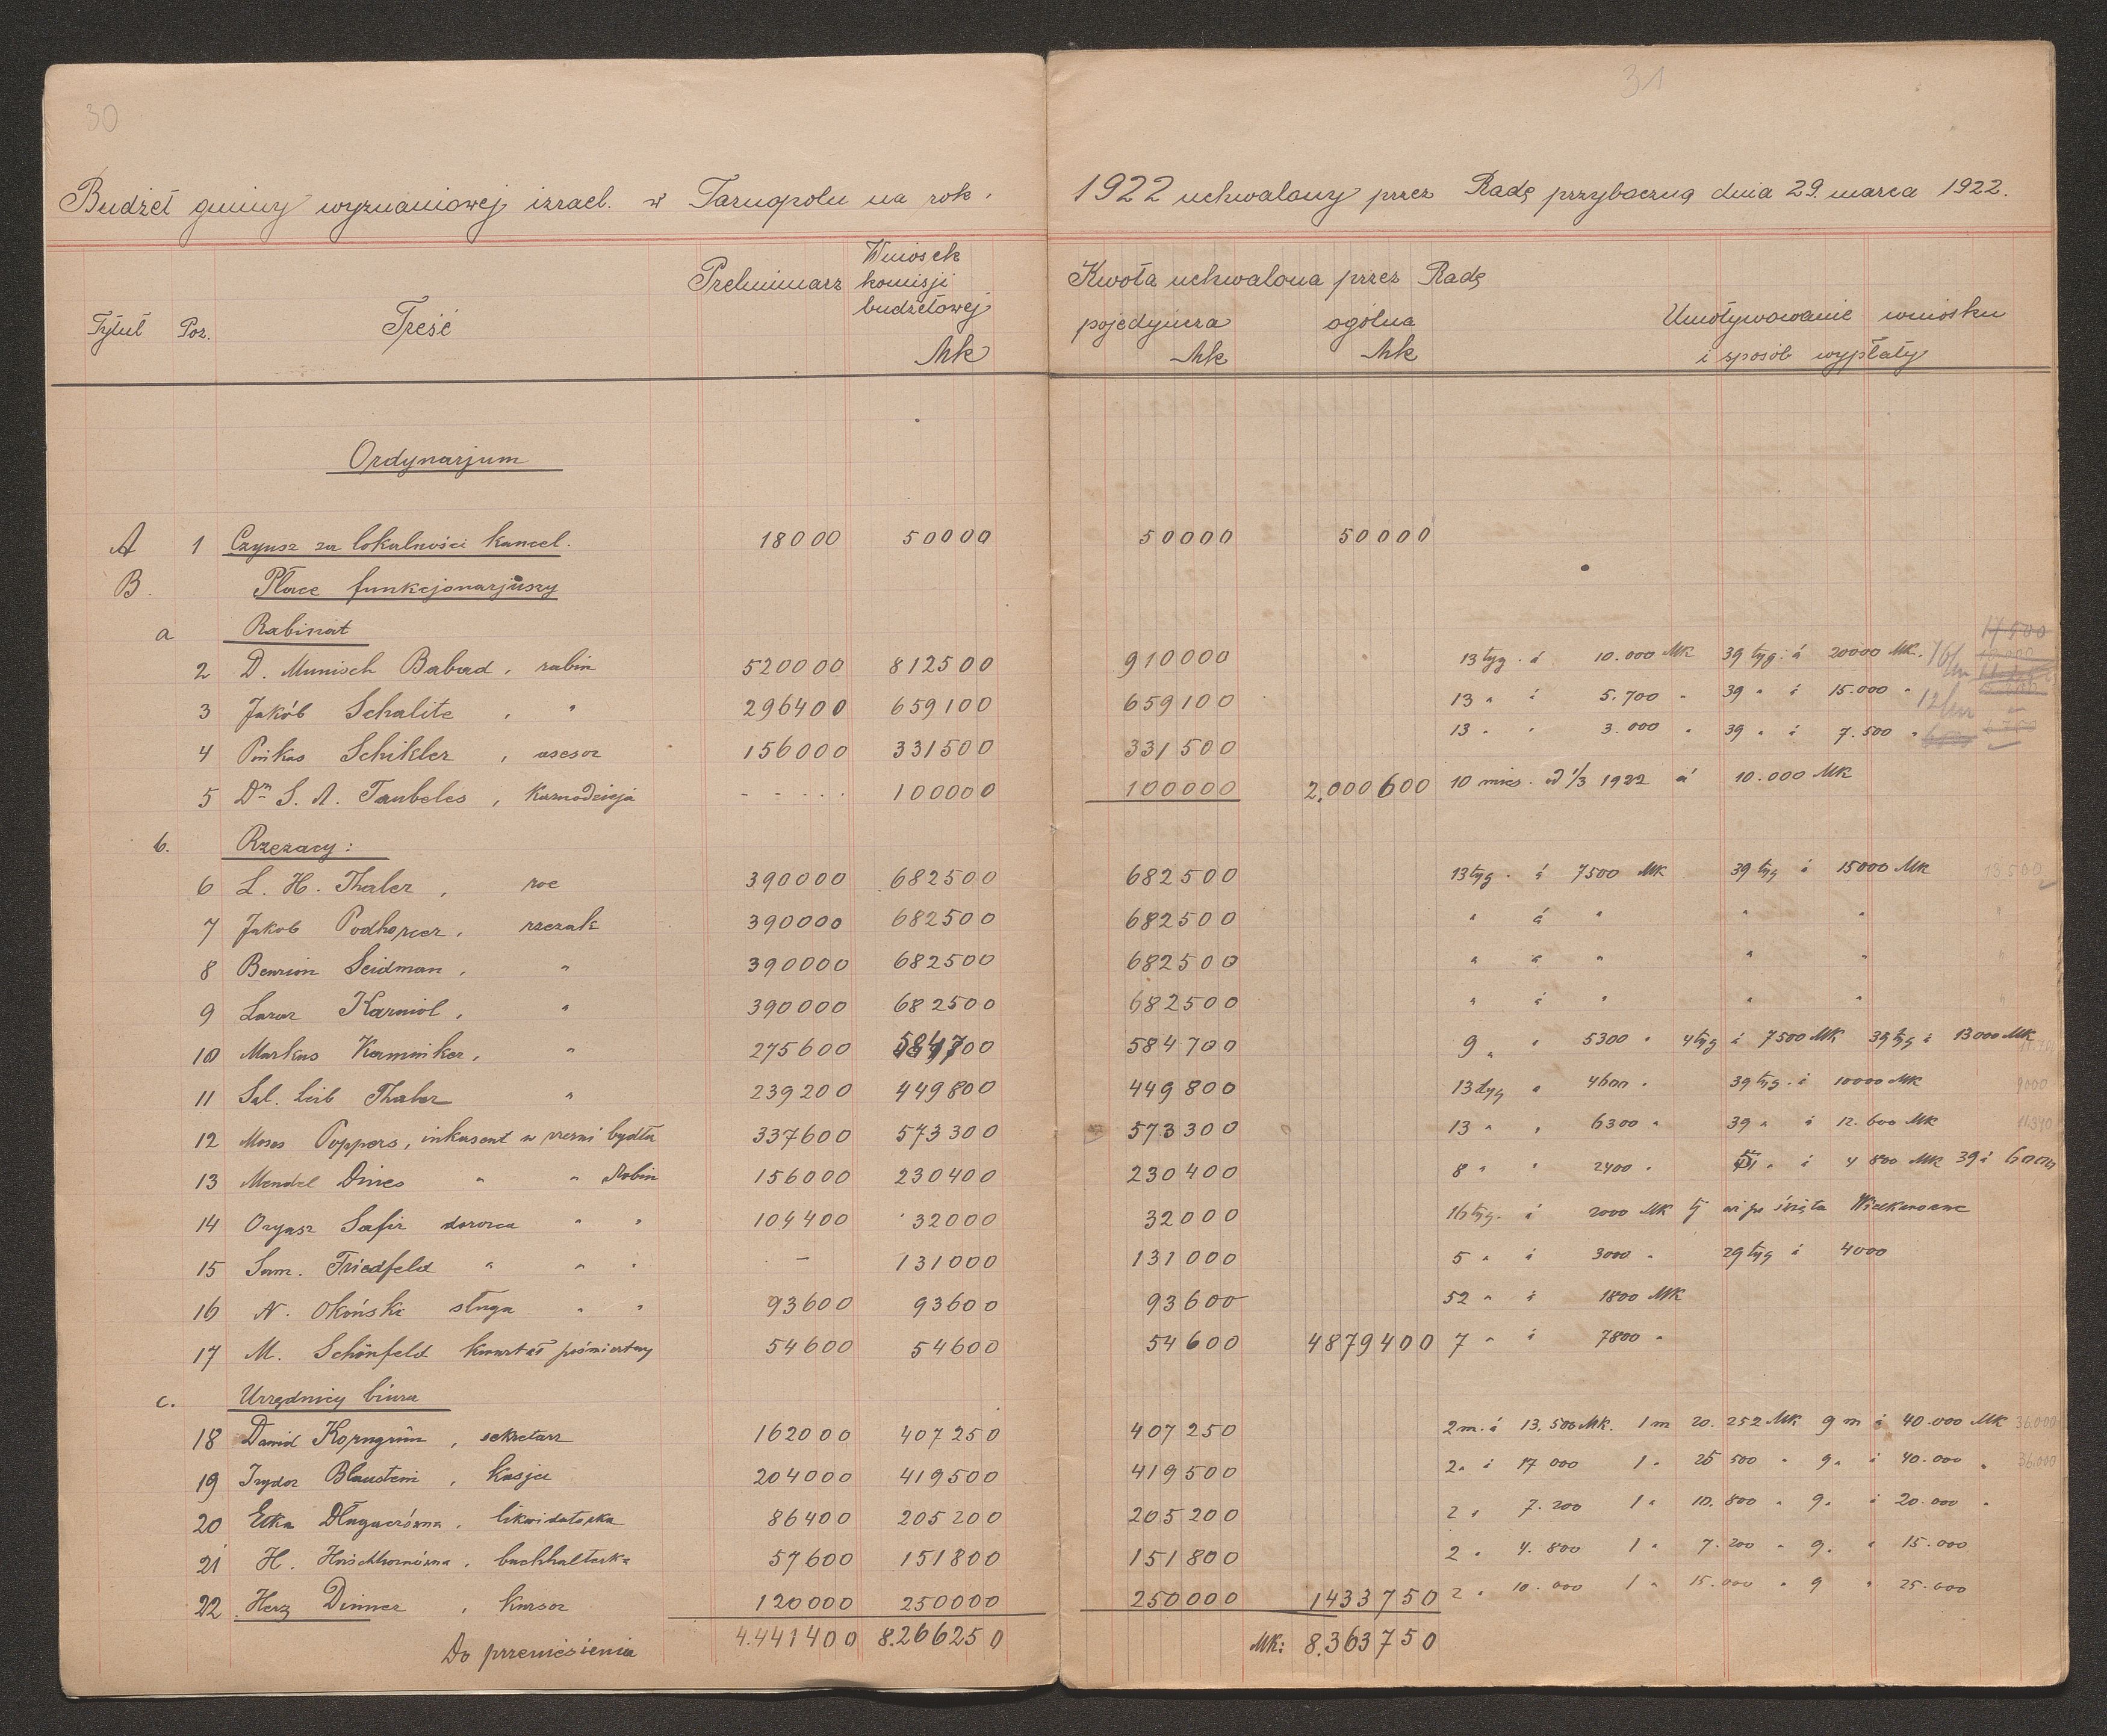 30
31
Budżet gminy wyznaniowej izrael. w Tarnopolu na rok 1922 uchwalony przez Radę przyboczną dnia 29. marca 1922.
Tytuł Poz. Treść Preliminarz Wniosek komisji budżetowej Mk Kwota uchwalona przez Radę pojedyncza Mk ogólna Mk Umotywowanie wniosku i sposób wypłaty
Ordynarjum
A 1 Czynsz za lokalności kancel. 18000 50000 50000 50000
B. Płace funkcjonarjuszy
a Rabinat
2 D. Munisch Babad, rabin 520000 812500 910000 13 tyg. á 10.000 Mk 39 tyg. á 20000 Mk.
3 Jakób Schalite, " 296400 659100 659100 13 " á 5.700 " 39 " á 15.000 "
4 Pinkas Schikler, asesor 156000 331500 331500 13 " " 3.000 " 39 " á 7.500 "
5 Dr S. A. Taubeles, Kaznodzieja - - - - - 100000 100000 2.000600 10 mies. od 1/3 1922 á 10.000 Mk
b. Rzezacy:
6 L. H. Thaler, rze 390000 682500 682500 13 tyg. á 7500 Mk 39 tyg á 15000 Mk 13500
7 Jakob Podhorcer, rzezak 390000 682500 682500 " á " " "
8 Benzion Seidman, " 390000 682500 682500 " " " " "
9 Lazar Karniol, " 390000 682500 682500 " á " " "
10 Markus Kerminker, " 275600 584700 584700 9 " " 5300 " 4 tyg á 7500 Mk 39 tyg á 13000 Mk
11 Sal. Leib Thaler " 239200 449800 449800 13 tyg " 4600 " 39 tyg. á 10000 Mk 9000
12 Moses Poppers, inkasent w rzezni bydła 337600 573300 573300 13 " " 6300 " 39 " á 12.600 Mk 11340
13 Mendel Dines " " Drobin 156000 230400 230400 8 " " 2400 " " á 4800 Mk 39 á
14 Ozyasz Safir dozorca " " 104400 32000 32000 16 tyg. á 2000 Mk tj po święta Wielkanocne
15 Sam. Friedfeld " " " – 131000 131000 5 " á 3000 " 29 tyg á 4000
16 N. Okoński sługa " " 93600 93600 93600 52 " á 1800 Mk
17 M. Schönfeld kwartał pośmiertny 54600 54600 54600 4879400 7 " á 7800 "
c. Urzędnicy biura
18 Dawid Korngrün, sekretarz 162000 407250 407250 2 m. á 13.500 Mk. 1 m 20.252 Mk 9 m á 40.000 Mk 36.000
19 Izydor Blaustein, Kasjer 204000 419500 419500 2 " á 17 000 1 " 25 500 " 9 " á 40.000 " 36.000
20 Etka Długaczówna, likwidatorka 86400 205200 205200 2 " 7.200 1 " 10.800 " 9 " á 20.000 "
21 H. Hirschhornówna, buchhalterka 57600 151800 151800 2 " 4.800 1 " 7.200 " 9 " " 15.000
22 Herz Dinner, kursor 120000 250000 250000 1433750 2 " 10.000 1 " 15.000 " 9 " 25.000
Do przeniesienia 4.441400 8.266250 Mk: 8.363750